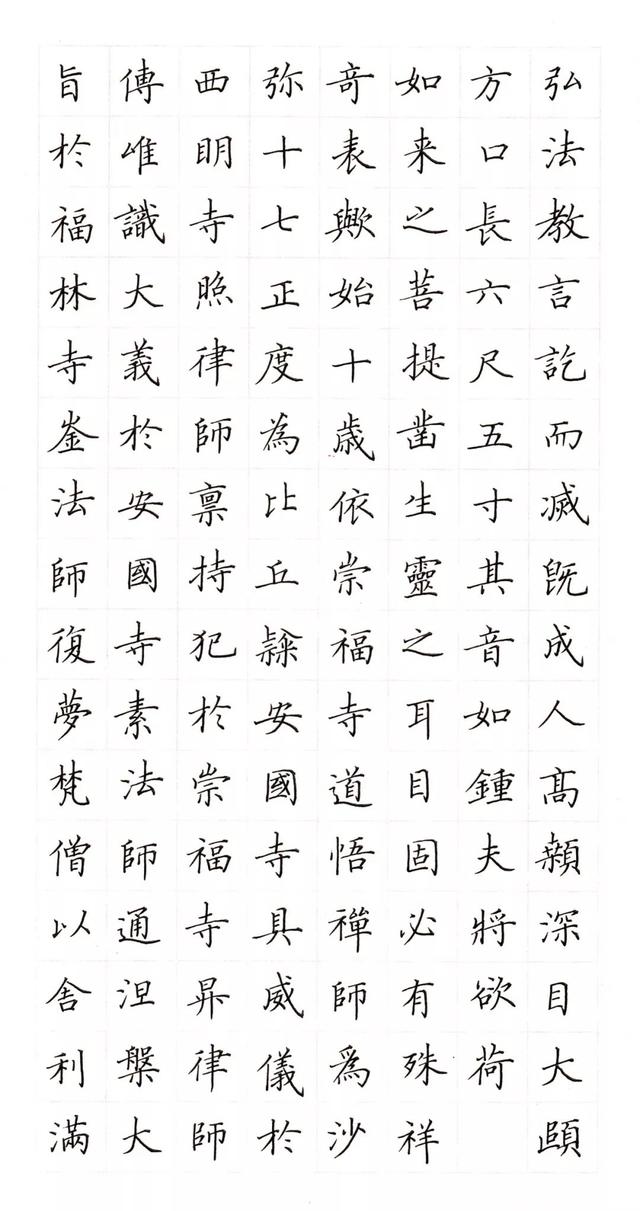 弘法教言訖而滅既成人高顙深目大頤
方口長六尺五寸其音如鍾夫將欲荷
如来之菩提凿生靈之耳目固必有殊祥
奇表歟始十歳依崇福寺道悟禪師為沙
弥十七正度為比丘隸安國寺具威儀於
西明寺照律師禀持犯於崇福寺昇律師
傳唯識大義於安國寺素法師通涅槃大
旨於福林寺崟法師復夢梵僧以舍利滿